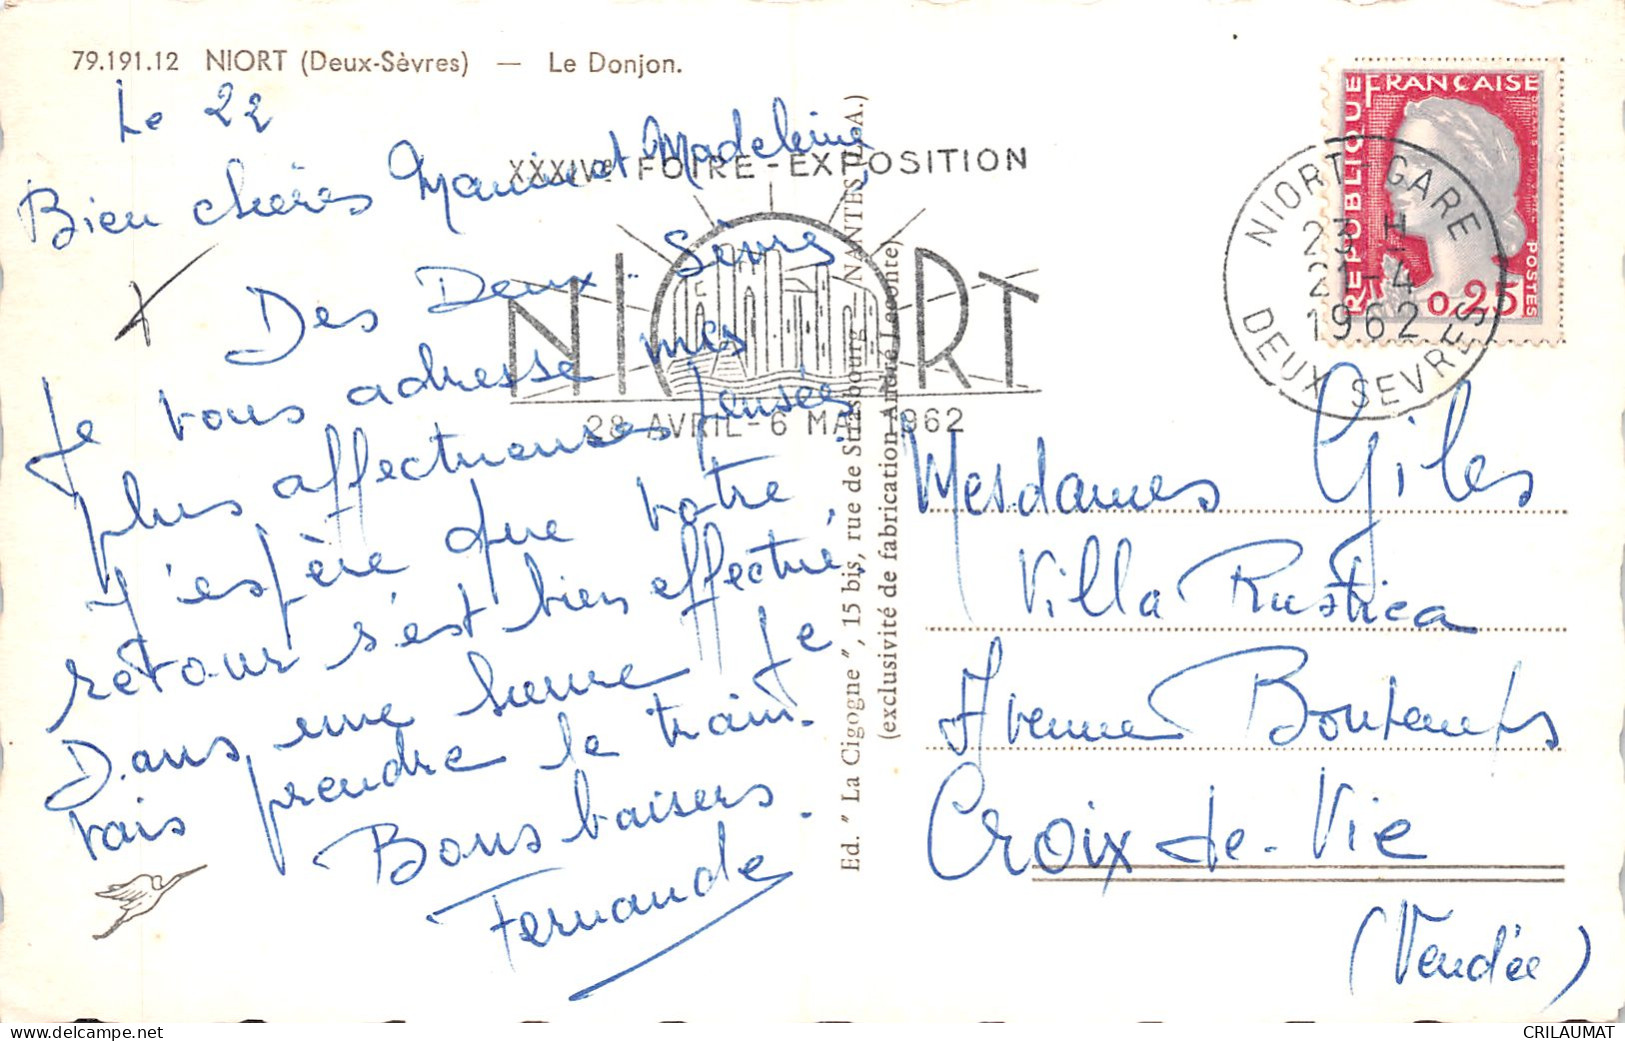 79.191.12 NIORT (Deux-Sèvres) — Le Donjon.
Le 22
Bien chères Maminet Madeleine
Des Deux-Sèvre
Je vous adresse mes
plus affectueuses pensées
J'espère que votre
retour s'est bien effectué.
Dans une heure je
vais prendre le train.
Bons baisers.
Fernande
XXXIVe FOIRE-EXPOSITION
NIORT
28 AVRIL-6 MAI 1962
Ed. " La Cigogne ", 15 bis, rue de Strasbourg — NANTES (L.-A.)
(exclusivité de fabrication André Leconte)
REPUBLIQUE FRANÇAISE
POSTES
0,25
NIORT-GARE
23 H
21-4
1962
DEUX SEVRES
Mesdames Giles
Villa Rustica
Avenue Bontemps
Croix-de-Vie
(Vendée)
CRILAUMAT